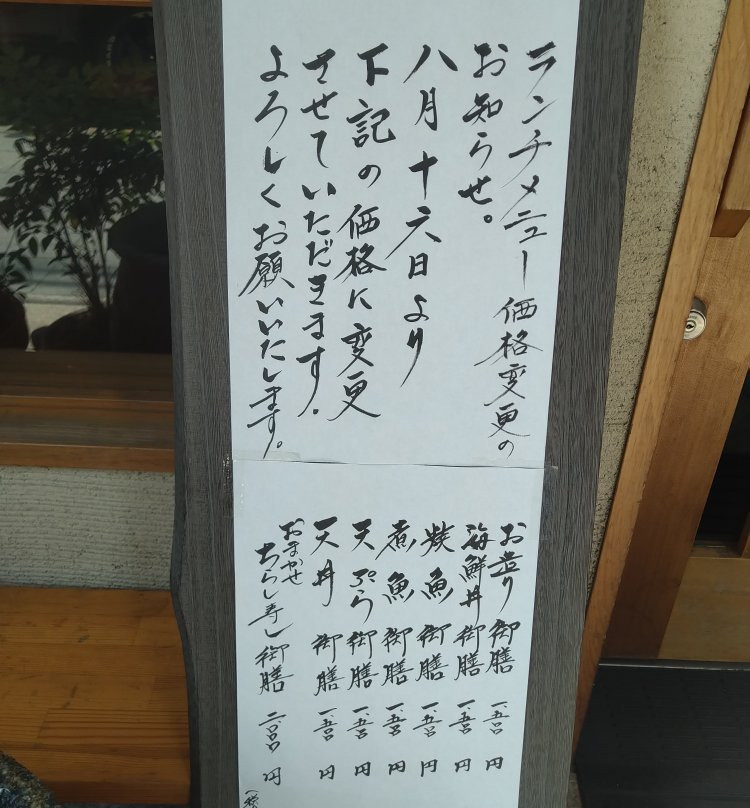 ランチメニュー価格変更の
お知らせ。
八月十六日より
下記の価格に変更
させていただきます。
よろしくお願いいたします。
お造り御膳 一、五〇〇円
海鮮丼御膳 一、五〇〇円
焼魚御膳 一、五〇〇円
煮魚御膳 一、五〇〇円
天ぷら御膳 一、五〇〇円
天丼御膳 一、五〇〇円
おまかせ
ちらし寿し御膳 二、〇〇〇円